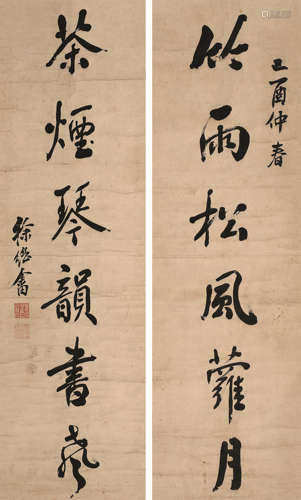 己酉仲春
竹雨松風蘿月
茶煙琴韻書聲